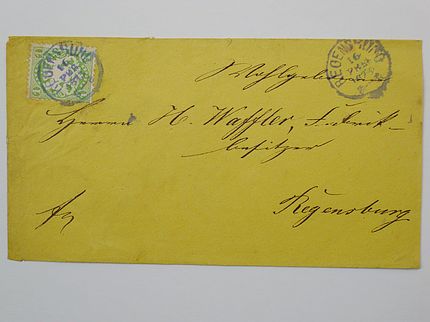 REGENSBURG
REGENSBURG
Wohlgeboren
Herrn H. Waffler, Fabrik-
besitzer
Regensburg